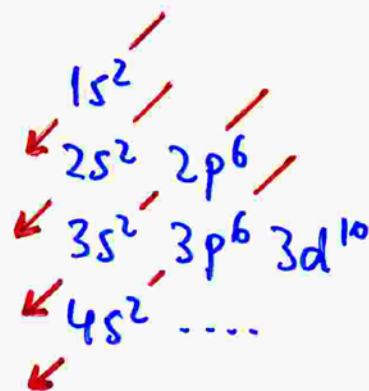 1s²
2s² 2p⁶
3s² 3p⁶ 3d¹⁰
4s² .....